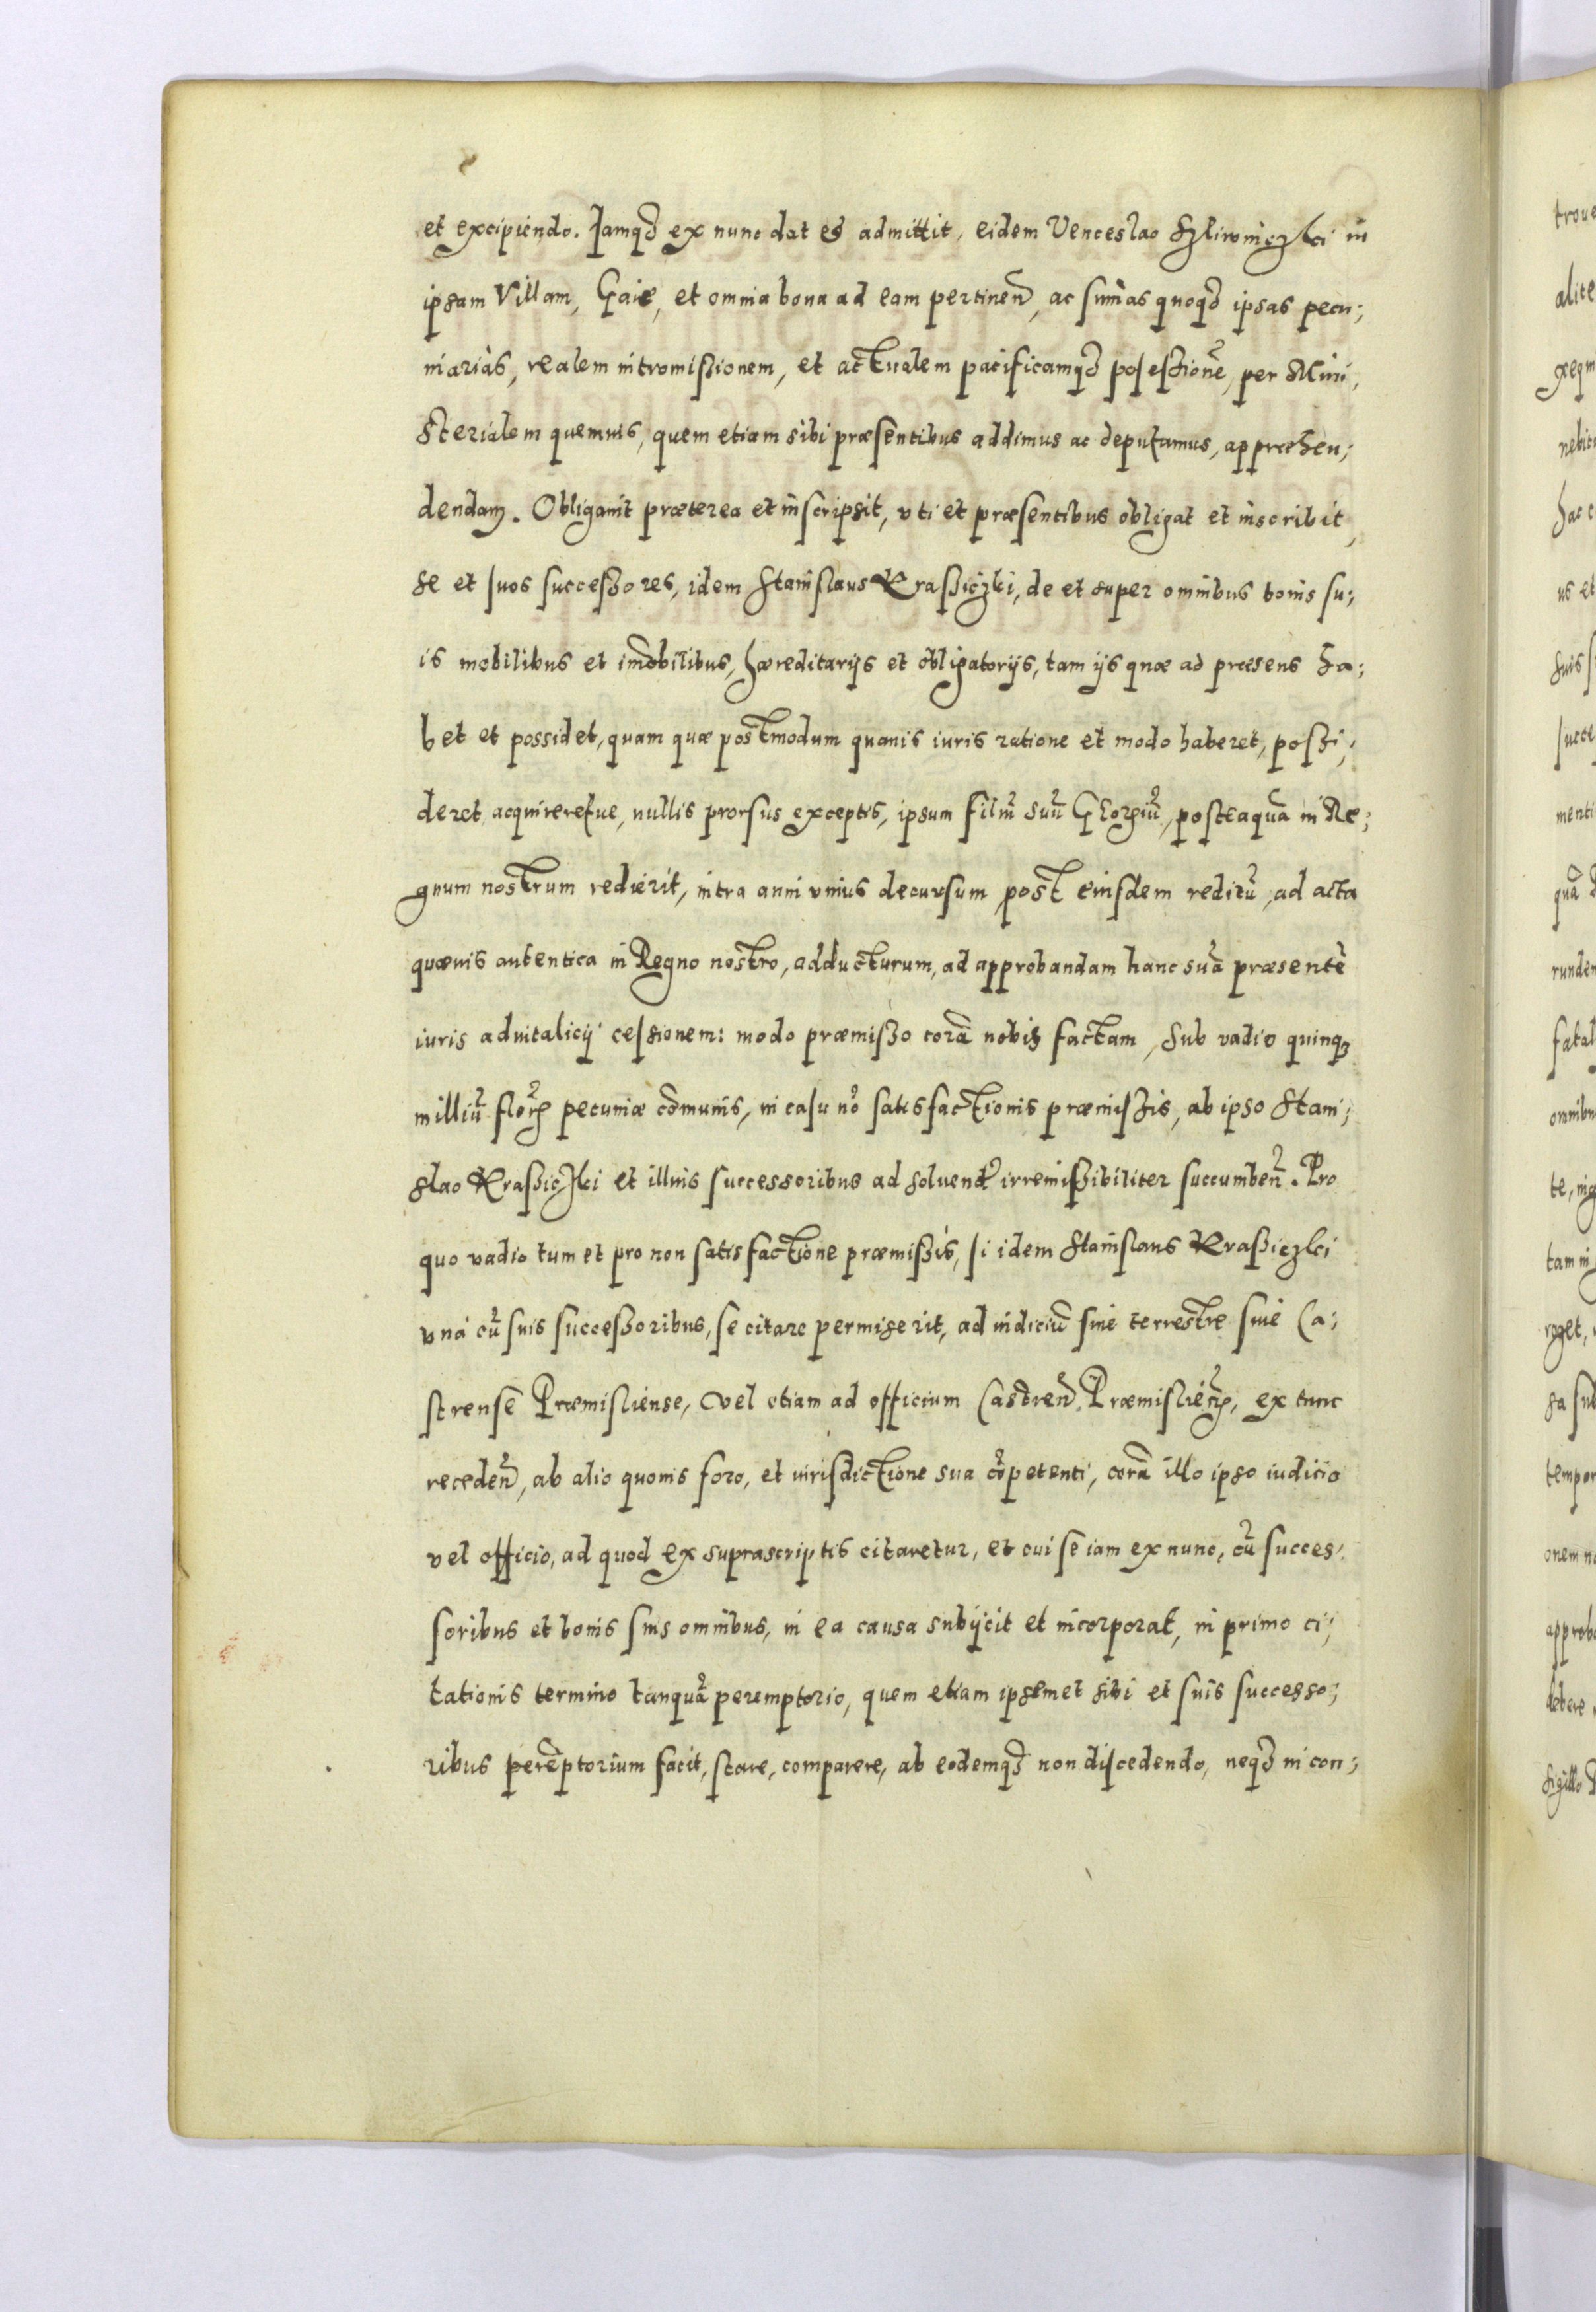 et excipiendo. Jamq3 ex nunc dat et admittit, eidem Venceslao Szliwniczki in
ipsam Villam, Gaie, et omnia bona ad eam pertinen̄, ac sum̄as quoq3 ipsas pecu;
niarias, realem intromißionem, et actualem pacificamq3 poseßionē, per Mini;
sterialem quemuis, quem etiam sibi præsentibus addimus ac deputamus, appræhen;
dendam. Obligauit præterea et inscripsit, vti et præsentibus obligat et inscribit,
se et suos succeßores, idem Stanislaus Kraßiczki, de et super omnibus bonis su;
is mobilibus et im̄obilibus, hæreditarijs et obligatorijs, tam ijs quæ ad præsens ha;
bet et possidet, quam quæ postmodum quauis iuris ratione et modo haberet, poßi;
deret acquireretue, nullis prorsus exceptis, ipsum filiū suū Georgiū, posteaquā in Re;
gnum nostrum redierit, intra anni vnius decursum post eiusdem reditū, ad acta
quæuis autentica in Regno nostro, adducturum, ad approbandam hanc suā præsentē
iuris aduitalicij cessionem: modo præmißo corā nobis factam, sub vadio quinq3
milliū flor̄ pecuniæ com̄unis, in casu nō satisfactionis præmißis, ab ipso Stani;
slao Kraßiczki et illius successoribus ad soluend̄ irremißibiliter succumben̄. Pro
quo vadio tum et pro non satisfactione præmißis, si idem Stanislaus Kraßiczki
vná cū suis succeßoribus, se citare permiserit, ad iudiciū siue terrestre siue Ca;
strense Præmisliense, vel etiam ad officium Castren̄. Præmislien̄, ex tunc
receden̄, ab alio quouis foro, et iurisdictione sua cōpetenti, corā illo ipso iudicio
vel officio, ad quod ex suprascriptis citaretur, et cui se iam ex nunc, cū succes;
soribus et bonis suis omnibus, in ea causa subijcit et incorporat, in primo ci;
tationis termino tanquā peremptorio, quem etiam ipsemet sibi et suis successo;
ribus perēptorium facit, stare, comparere, ab eodemq3 non discedendo, neq3 in con;